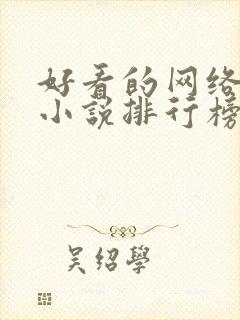 好看的网络
小说排行榜
吴绍學